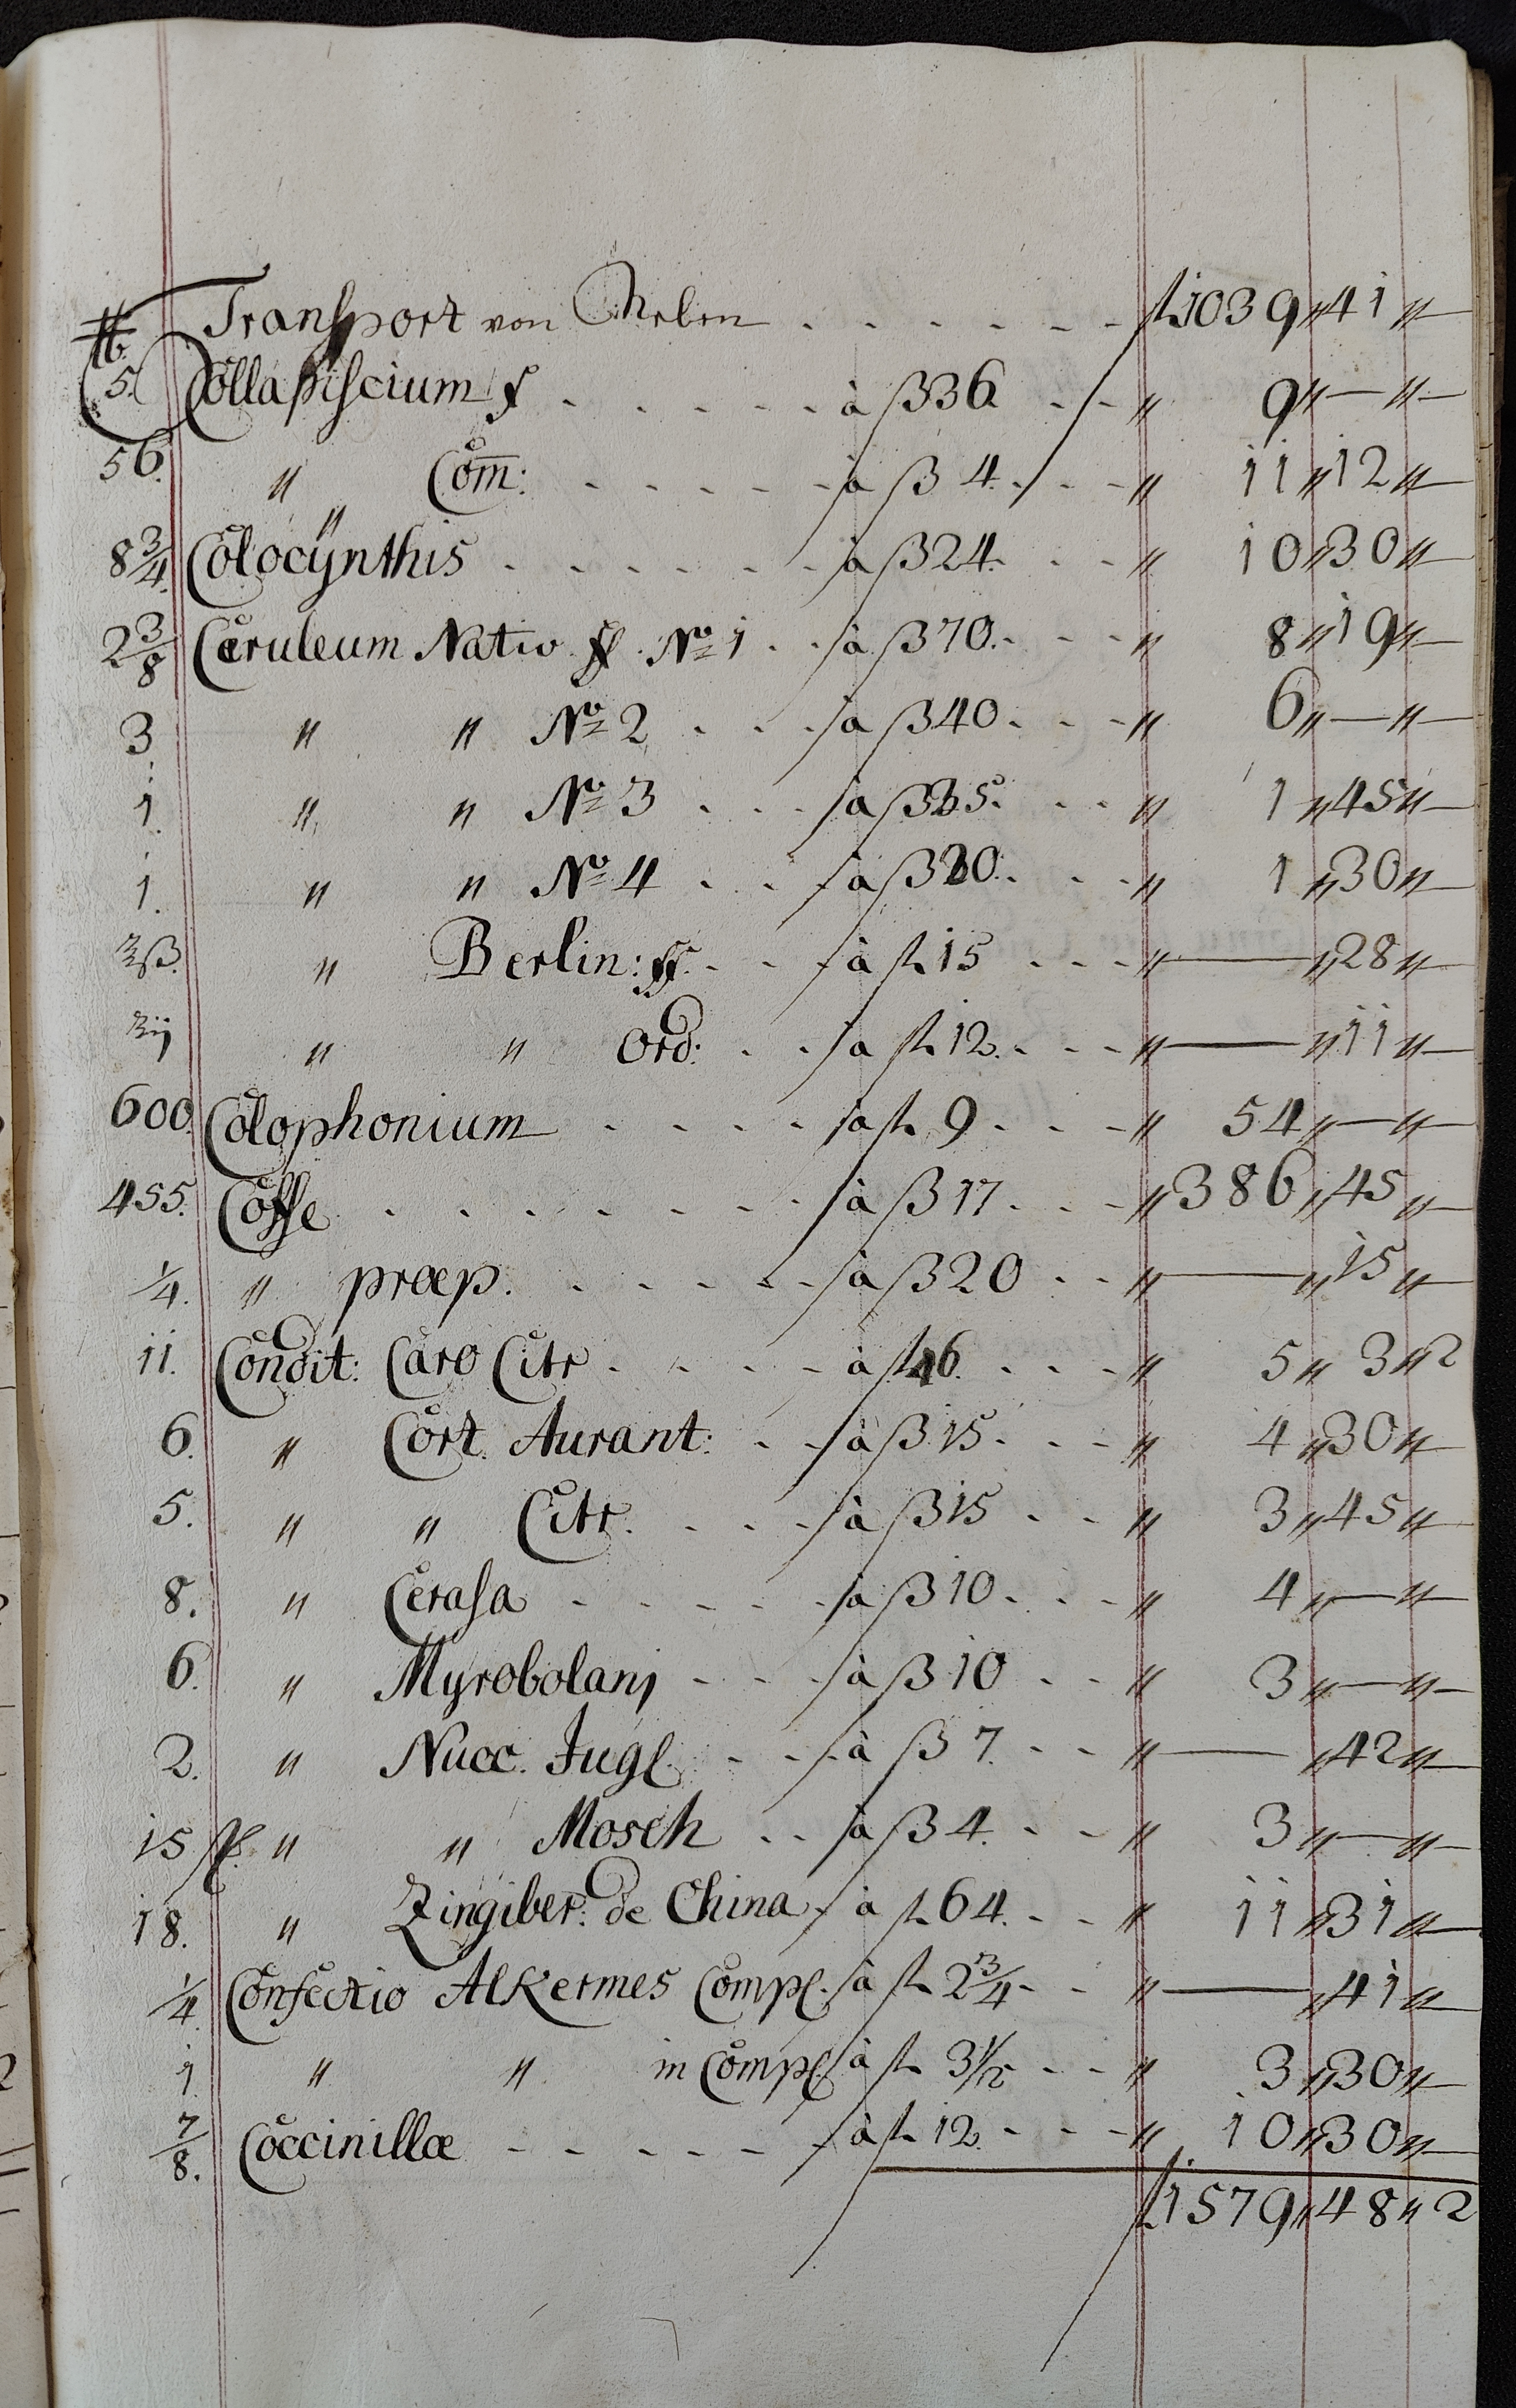 ℔. Transport von Neben . . . . . . . fl 1039 〃 41 〃 —
5. Collapiscium f . . . . . . à ß 36 . - 〃 9 〃 — 〃 —
56. 〃 〃 Com̄: . . . . . . à ß 4. . - 〃 11 〃 12 〃 —
8 3/4. Colocÿnthis . . . . . . . à ß 24. . - 〃 10 〃 30 〃 —
2 3/8 Cæruleum Nativ. ff. No 1 . . à ß 70. . - 〃 8 〃 19 〃 —
3. 〃 〃 No 2 . . . à ß 40 . . - 〃 6 〃 — 〃 —
1. 〃 〃 No 3 . . . à ß 35. . - 〃 1 〃 45 〃 —
1. 〃 〃 No 4 . . . à ß 30. . - 〃 1 〃 30 〃 —
℥ß. 〃 Berlin: ff. . . à fl 15 . . - 〃 — 〃 28 〃 —
ʒij 〃 〃 Ord: . . à fl 12. . - 〃 — 〃 11 〃 —
600. Colophonium . . . . . à fl 9 . . - 〃 54 〃 — 〃 —
455. Coffe . . . . . . . . à ß 17 . . - 〃 386 〃 45 〃 —
1/4. 〃 præp. . . . . . à ß 20 . . - 〃 — 〃 15 〃 —
11. Condit: Caro Citr . . . . à fl 46. . . - 〃 5 〃 3 〃 2
6. 〃 Cort. Aurant: . . à ß 15 . . - 〃 4 〃 30 〃 —
5. 〃 〃 Citr. . . . à ß 15 . . - 〃 3 〃 45 〃 —
8. 〃 Cerasa . . . . . à ß 10 . . - 〃 4 〃 — 〃 —
6. 〃 Myrobolanj . . . à ß 10 . . - 〃 3 〃 — 〃 —
2. 〃 Nucc. Jugl. . . à ß 7. . - 〃 — 〃 42 〃 —
15 〃 〃 Mosch . . à ß 4. . - 〃 3 〃 — 〃 —
18. 〃 Zingiber: de China . à fl 64. . - 〃 11 〃 31 〃 —
1/4. Confectio Alkermes Compl. à fl 2 3/4 . - 〃 — 〃 41 〃 —
1. 〃 〃 in Compl. à fl 3 1/2 . - 〃 3 〃 30 〃 —
7/8. Coccinillæ . . . . . . à fl 12. . - 〃 10 〃 30 〃 —
fl 1579 〃 48 〃 2